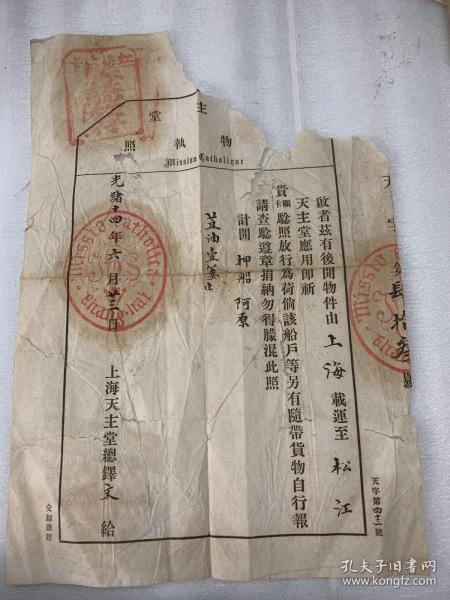 天主堂
物執照
Mission Catholique
啟者茲有後開物件由上海載運至松江
天主堂應用即祈
貴關卡驗照放行為荷倘該船戶等另有隨帶貨物自行報
請查驗遵章捐納勿得朦混此照
計開 押船 阿原
荳油壹簍止
光緒十四年六月廿三日 上海天主堂總鐸文給
天字第四十二號
Missio Catholica
Chang-hai
孔夫子旧书网
www.kongfz.com